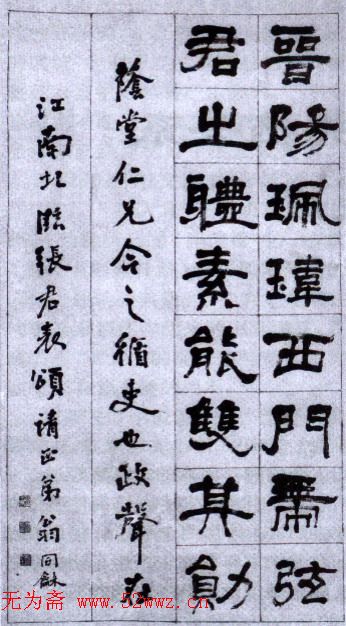 晉陽珮瑋西門帶弦
君之體素能雙其勛
蔭堂仁兄今之循吏也政聲在
江南北臨張君表頌請正弟翁同龢
无为斋 www.52wwz.cn